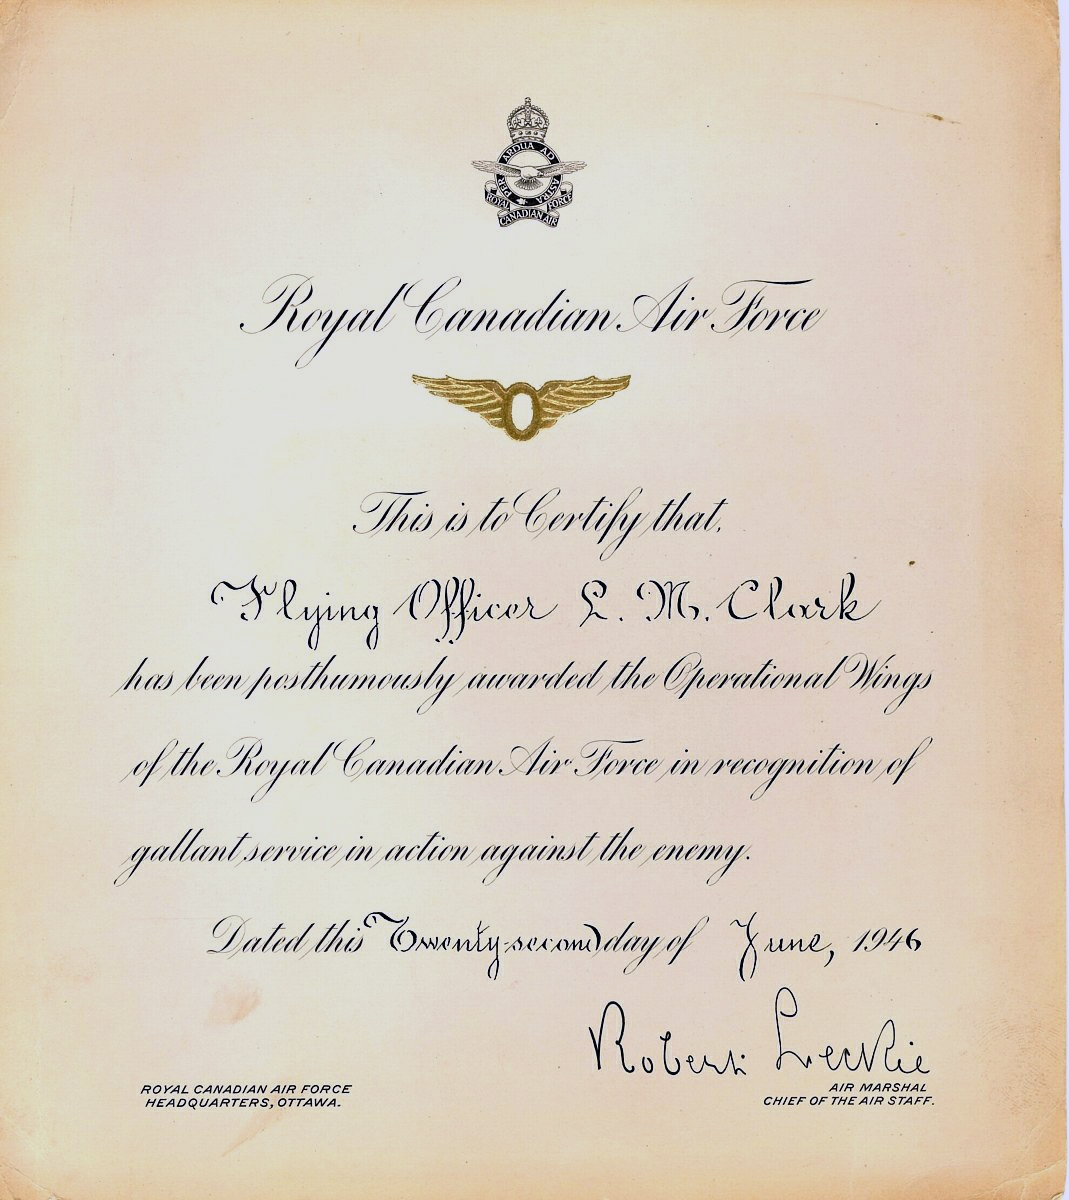 PER ARDUA AD ASTRA
ROYAL CANADIAN AIR FORCE
Royal Canadian Air Force
This is to Certify that,
Flying Officer L. M. Clark
has been posthumously awarded the Operational Wings
of the Royal Canadian Air Force in recognition of
gallant service in action against the enemy.
Dated this Twenty-second day of June, 1946
Robert Leckie
ROYAL CANADIAN AIR FORCE
HEADQUARTERS, OTTAWA.
AIR MARSHAL
CHIEF OF THE AIR STAFF.